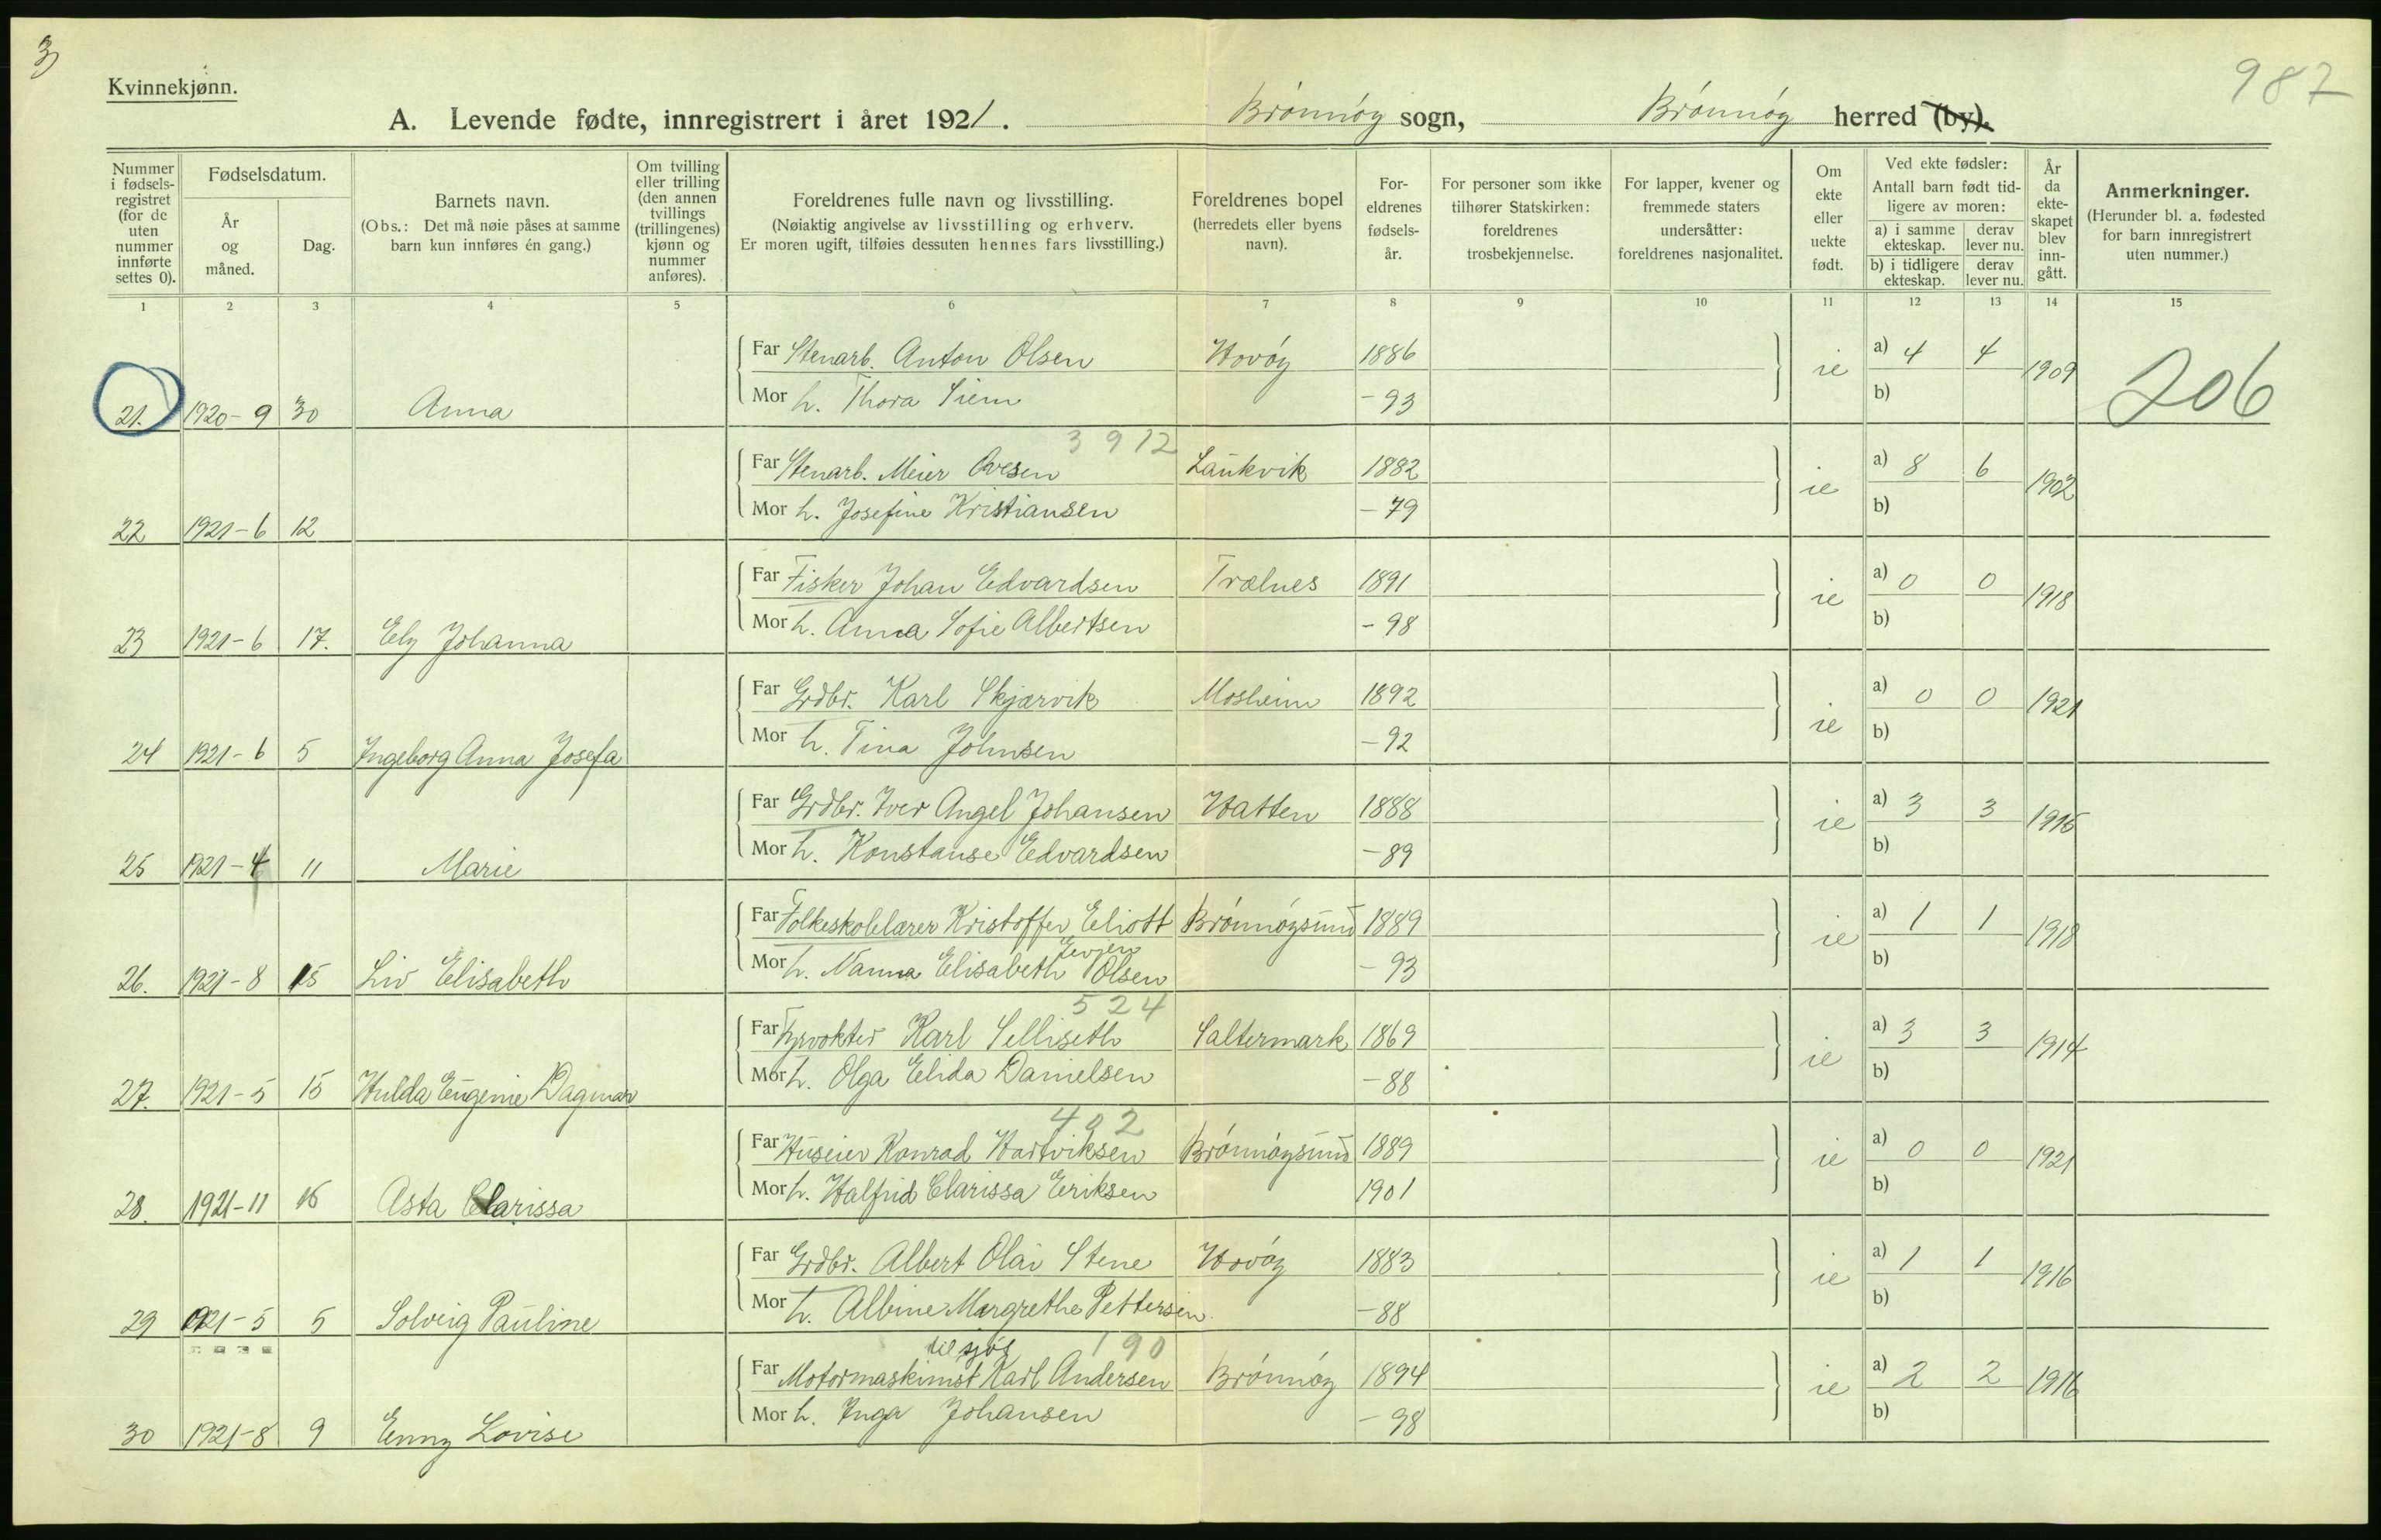 3)
987
Kvinnekjønn.
A. Levende fødte, innregistrert i året 1921. Brönnöy sogn, Brönnöy herred (by).
Nummer i fødsels-registret (for de uten nummer innførte settes 0).
Fødselsdatum.
År og måned.
Dag.
Barnets navn.
(Obs.: Det må nøie påses at samme barn kun innføres én gang.)
Om tvilling eller trilling (den annen tvillings (trillingenes) kjønn og nummer anføres).
Foreldrenes fulle navn og livsstilling.
(Nøiaktig angivelse av livsstilling og erhverv. Er moren ugift, tilføies dessuten hennes fars livsstilling.)
Foreldrenes bopel (herredets eller byens navn).
For-eldrenes fødsels-år.
For personer som ikke tilhører Statskirken: foreldrenes trosbekjennelse.
For lapper, kvener og fremmede staters undersåtter: foreldrenes nasjonalitet.
Om ekte eller uekte født.
Ved ekte fødsler:
Antall barn født tid-ligere av moren:
a) i samme ekteskap.
derav lever nu.
b) i tidligere ekteskap.
derav lever nu.
År da ekte-skapet blev inn-gått.
Anmerkninger.
(Herunder bl. a. fødested for barn innregistrert uten nummer.)
1 2 3 4 5 6 7 8 9 10 11 12 13 14 15
Far Stenarb. Anton Olsen Hovöy 1886 ie a) 4 4 1909 206
21. 1920-9 30 Anna Mor h. Thora Siem -93 b)
3912
Far Stenarb. Meier Ovesen Laukvik 1882 ie a) 8 6 1902
22 1921-6 12 Mor h. Josefine Kristiansen -79 b)
Far Fisker Johan Edvardsen Trælnes 1891 ie a) 0 0 1918
23 1921-6 17. Ely Johanna Mor h. Anna Sofie Albertsen -98 b)
Far Grdbr. Karl Skjærvik Mosheim 1892 ie a) 0 0 1921
24 1921-6 5 Ingeborg Anna Josefa Mor h. Tina Johnsen -92 b)
Far Grdbr. Iver Angel Johansen Hatten 1888 ie a) 3 3 1916
25 1921-4 11 Marie Mor h. Konstanse Edvardsen -89 b)
Far Folkeskolelærer Kristoffer Eliott Brönnöysund 1889 ie a) 1 1 1918
Evjen
26. 1921-8 15 Liv Elisabeth Mor h. Nanna Elisabeth Olsen -93 b)
524
Far Fyrvokter Karl Selliseth Saltermark 1869 ie a) 3 3 1914
27. 1921-5 15 Hulda Eugenie Dagmar Mor h. Olga Elida Danielsen -88 b)
402
Far Huseier Konrad Hartviksen Brönnöysund 1889 ie a) 0 0 1921
28. 1921-11 16 Asta Clarissa Mor h. Halfrid Clarissa Eriksen 1901 b)
Far Grdbr. Albert Olai Stene Hovöy 1883 ie a) 1 1 1916
29 1921-5 5 Solveig Pauline Mor h. Albine Margrethe Pettersen -88 b)
til sjös 190
Far Motormaskinist Karl Andersen Brönnöy 1894 ie a) 2 2 1916
30 1921-8 9 Enny Lovise Mor h. Inga Johansen -98 b)